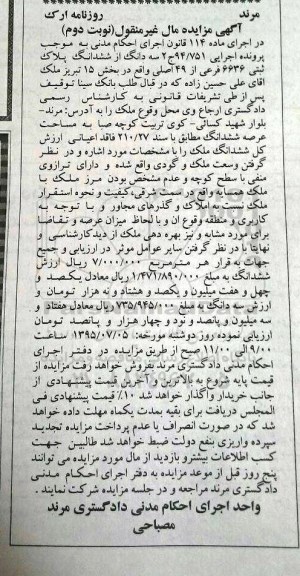 مرند روزنامه ارک
آگهی مزایده مال غیرمنقول(نوبت دوم)
در اجرای ماده ۱۱۴ قانون اجرای احکام مدنی به موجب
پرونده اجرایی ۹۴/۷۵۱ج۲ سه دانگ از ششدانگ پلاک
ثبتی ۶۶۳۶ فرعی از ۴۹ اصلی واقع در بخش ۱۵ تبریز ملک
آقای علی حسین زاده که در قبال طلب بانک سینا توقیف
پس از طی تشریفات قانونی به کارشناس رسمی
دادگستری ارجاع وی محل وقوع ملک را به آدرس: مرند-
بلوار شهید کسائی- کوی تربیت کوچه صبا به مساحت
عرصه ششدانگ مطابق با سند ۲۱۰/۲۷ فاقد اعیانی ارزش
کل ششدانگ ملک را با مشخصات مورد اشاره و در نظر
گرفتن وسعت ملک و گودی واقع شده و دارای ترازوی
منفی با سطح کوچه و عدم مشخص بودن مرز ملک با
ملک همسایه واقع در سمت شرقی،کیفیت و نحوه استقرار
ملک نسبت به املاک و گذرهای مجاور و با توجه به
کاربری و منطقه وقوع آن و با لحاظ میزان عرضه و تقاضا
برای مورد مشابه و نیز بهره دهی ملک از دیدکارشناسی و
نهایتا با در نظر گرفتن سایر عوامل موثر در ارزیابی و جمیع
جهات به قرار هر مترمربع ۷/۰۰۰/۰۰۰ ریال ارزش
ششدانگ به مبلغ ۱/۴۷۱/۸۹۰/۰۰۰ ریال معادل یکصد و
چهل و هفت میلیون و یکصد و هشتاد و نه هزار تومان و
ارزش سه دانگ به مبلغ ۷۳۵/۹۴۵/۰۰۰ ریال معادل هفتاد و
سه میلیون و پانصد و نود و چهار هزار و پانصد تومان
ارزیابی نموده روز دوشنبه مورخه: ۱۳۹۵/۰۷/۰۵ ساعت
۹/۰۰ الی ۱۱/۰۰ صبح از طریق مزایده در دفتر اجرای
احکام مدنی دادگستری مرند بفروش خواهد رفت مزایده از
قیمت پایه شروع به بالاترین و آخرین قیمت پیشنهادی از
جانب خریدار واگذار خواهد شد ۱۰٪ قیمت پیشنهادی فی
المجلس دریافت برای بقیه بمدت یکماه مهلت داده خواهد
شد که در صورت انصراف یا عدم پرداخت مزایده تجدید
سپرده واریزی بنفع دولت ضبط خواهد شد طالبین جهت
کسب اطلاعات بیشترو بازدید از مال مورد مزایده می توانند
پنج روز قبل از موعد مزایده به دفتر اجرای احکام مدنی
دادگستری مرند مراجعه و در جلسه مزایده شرکت نمایند .
واحد اجرای احکام مدنی دادگستری مرند
مصباحی